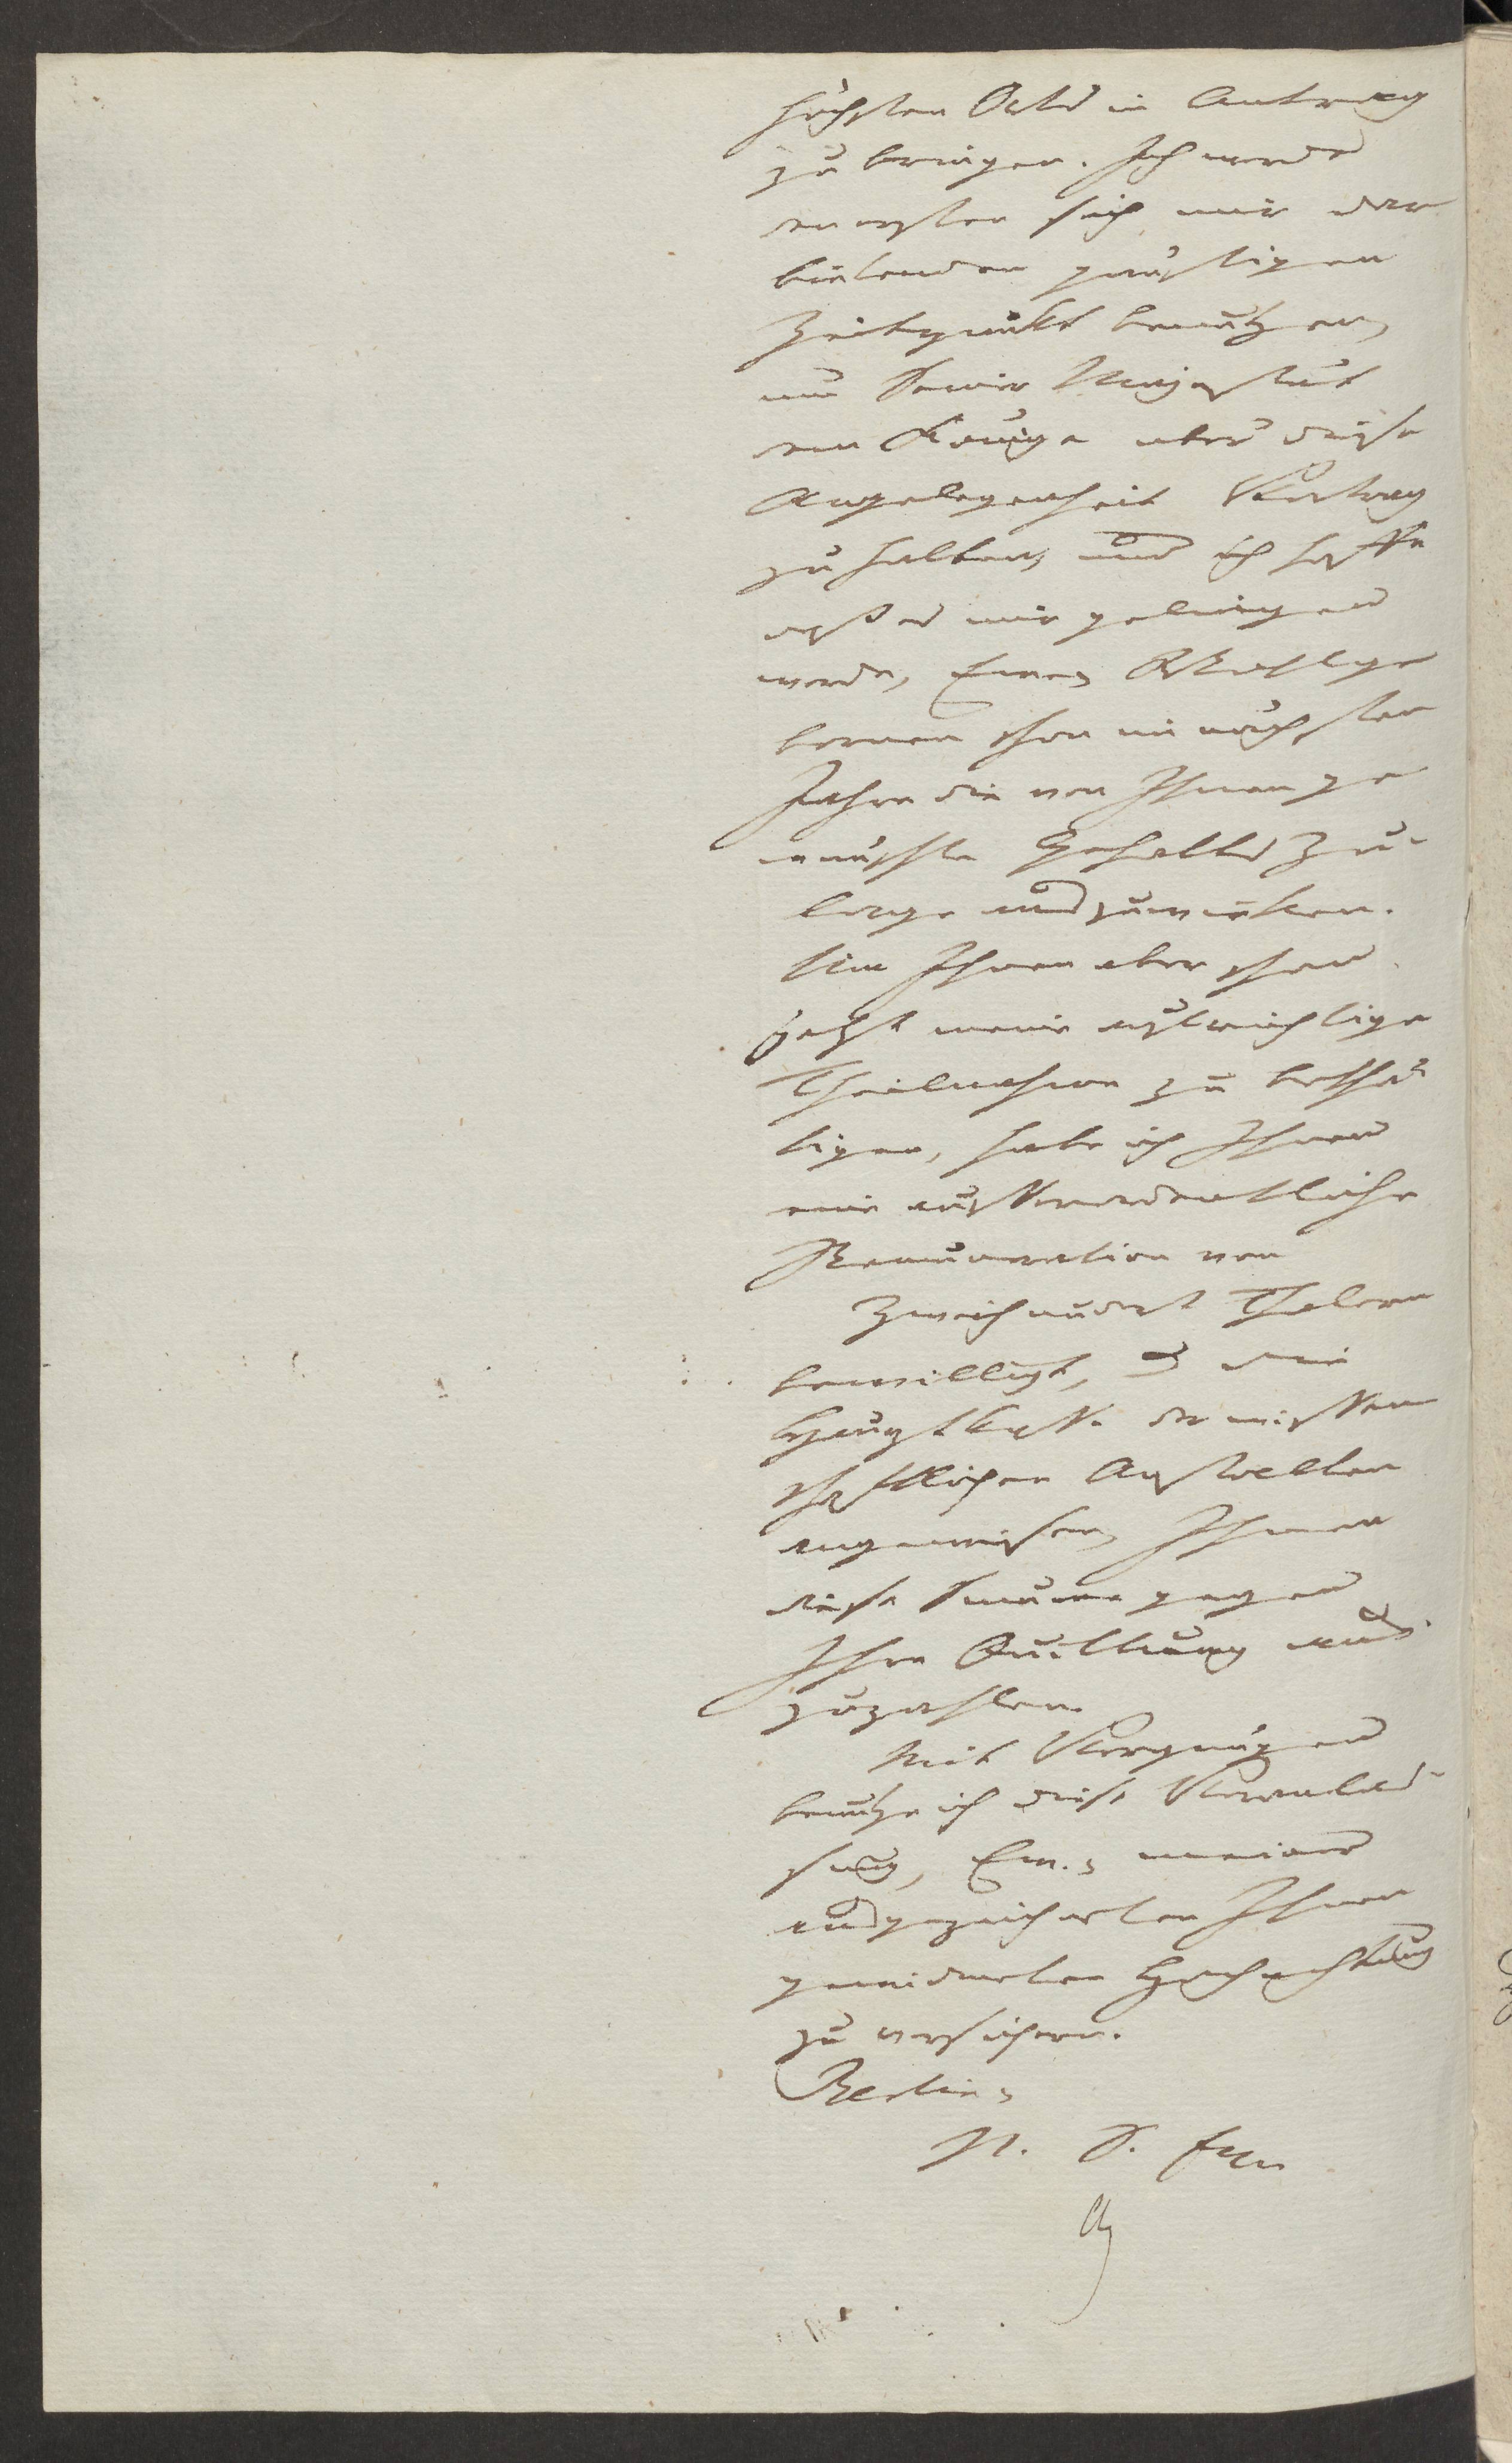 höchsten Orts in Antrag
zu bringen. Ich werde
den ersten sich mir dar
bietenden günstigen
Zeitpunkt benutzen,
um Seiner Majestät
dem Könige über diese
Angelegenheit Vortrag
zu halten, und ich hoffe
daß es mir gelingen
werde, Euer, Hochwohlge
bornen schon im nächsten
Jahre die von Ihnen ge
wünschte Gehalts Zu-
lage auszuwirken.
Um Ihnen aber schon
jetzt meine aufrichtige
Theilnahme zu bethä-
tigen, habe ich Ihnen
eine außerordentliche
Remuneration von
Zweihundert Thalern
bewilligt, u die
Hauptkasse der wissen
schaftlichen Anstalten
angewiesen, Ihnen
diese Summe gegen
Ihre Quittung aus
zuzahlen.
Mit Vergnügen
benutze ich diese Veranlas-
sung, Ew., meiner
ausgezeichneten Ihnen
gewidmeten Hochachtung
zu versichern.
Berlin,
N. S. Exc